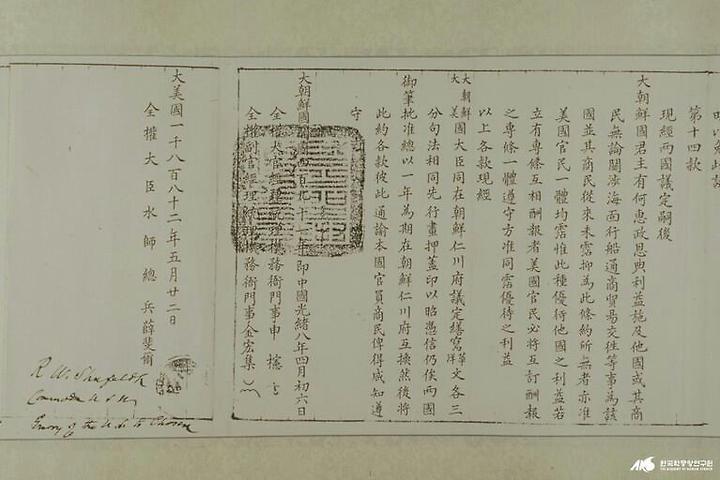 第十四款
現經兩國議定嗣後
大朝鮮國君主有何惠政恩典利益施及他國或其商
民無論關涉海面行船通商貿易交往等事為該
國並其商民從來未霑抑為此條約所無者亦准
美國官民一體均霑惟此種優待他國之利益若
立有專條互相酬報者美國官民必將互訂酬報
之專條一體遵守方准同霑優待之利益
以上各款現經
大朝鮮
大美
國大臣同在朝鮮仁川府議定繕寫華洋文各三
分句法相同先行畫押蓋印以昭憑信仍俟兩國
御筆批准總以一年為期在朝鮮仁川府互換然後將
此約各款彼此通諭本國官員商民俾得咸知遵
守
大朝鮮國開國四百九十一年即中國光緒八年四月初六日
全權大官經理統理機務衙門事申櫶
全權副官經理統理機務衙門事金宏集
大美國一千八百八十二年五月廿二日
全權大臣水師總兵薛斐爾
R W Shufeldt
Commodore U S N
Envoy of the U.S. to Chosen
AKS 한국학중앙연구원
THE ACADEMY OF KOREAN STUDIES